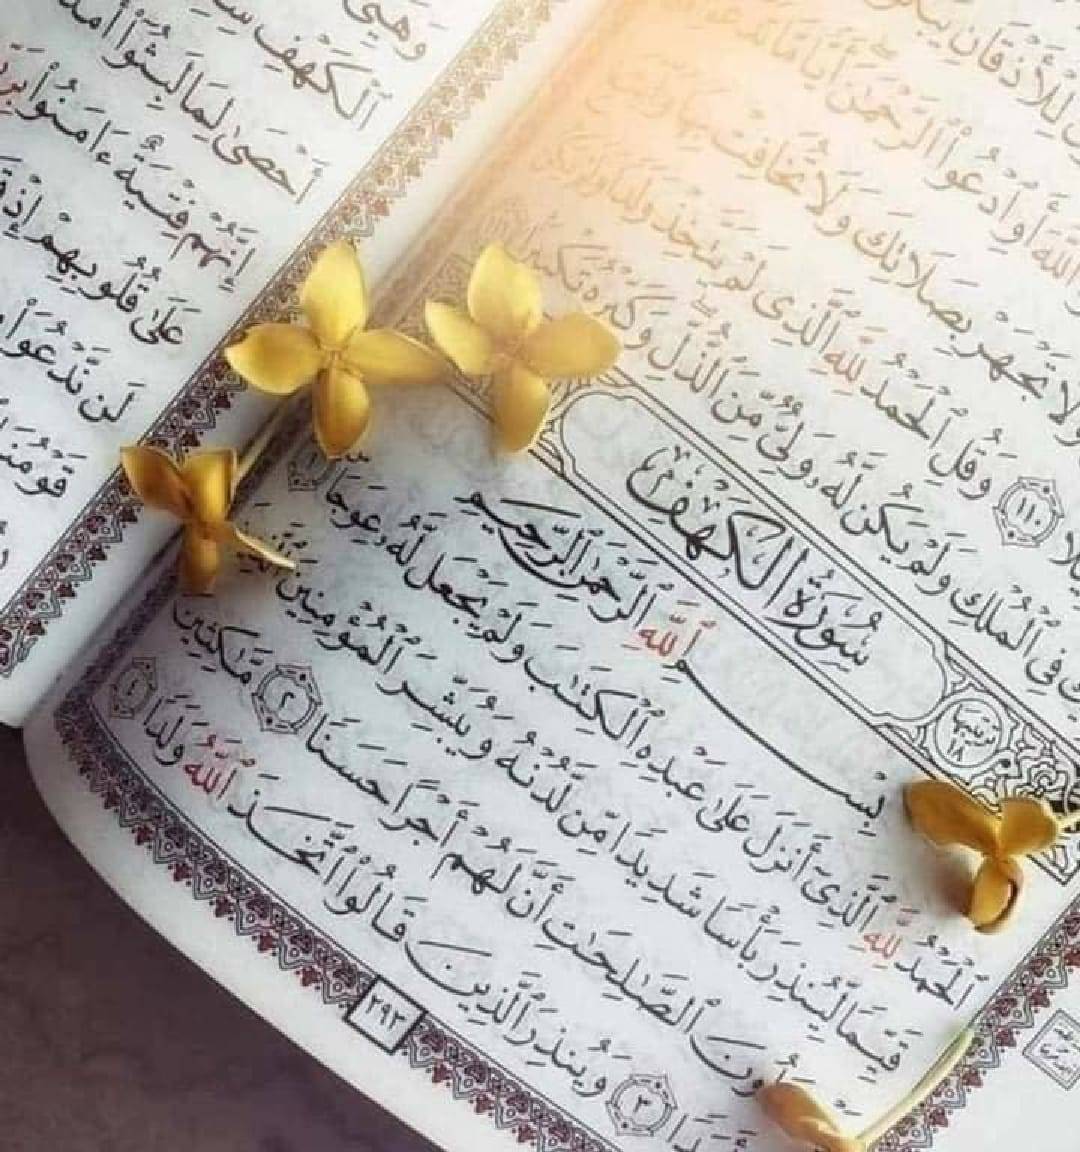 لِلْأَذْقَانِ
ٱللَّهَ أَوِ ٱدْعُوا۟ ٱلرَّحْمَٰنَ أَيًّا مَّا
وَلَا تَجْهَرْ بِصَلَاتِكَ وَلَا تُخَافِتْ بِهَا
١١٠ وَقُلِ ٱلْحَمْدُ لِلَّهِ ٱلَّذِى لَمْ يَتَّخِذْ وَلَدًا وَلَمْ يَكُن
فِى ٱلْمُلْكِ وَلَمْ يَكُن لَّهُۥ وَلِىٌّ مِّنَ ٱلذُّلِّ وَكَبِّرْهُ تَكْبِيرًۢا
سُورَةُ الكَهْفِ
ترتيبها ١٨
بِسْمِ ٱللَّهِ ٱلرَّحْمَٰنِ ٱلرَّحِيمِ
ٱلْحَمْدُ لِلَّهِ ٱلَّذِىٓ أَنزَلَ عَلَىٰ عَبْدِهِ ٱلْكِتَٰبَ وَلَمْ يَجْعَل لَّهُۥ عِوَجَاۜ ١
قَيِّمًا لِّيُنذِرَ بَأْسًا شَدِيدًا مِّن لَّدُنْهُ وَيُبَشِّرَ ٱلْمُؤْمِنِينَ ٱلَّذِينَ
ٱلصَّٰلِحَٰتِ أَنَّ لَهُمْ أَجْرًا حَسَنًا ٢ مَّٰكِثِينَ
٣ وَيُنذِرَ ٱلَّذِينَ قَالُوا۟ ٱتَّخَذَ ٱللَّهُ وَلَدًا ٤
٢٩٣
ٱلْكَهْفِ
أَحْصَىٰ لِمَا لَبِثُوٓا۟
إِنَّهُمْ فِتْيَةٌ ءَامَنُوا۟
عَلَىٰ قُلُوبِهِمْ إِذْ
لَن نَّدْعُوَا۟